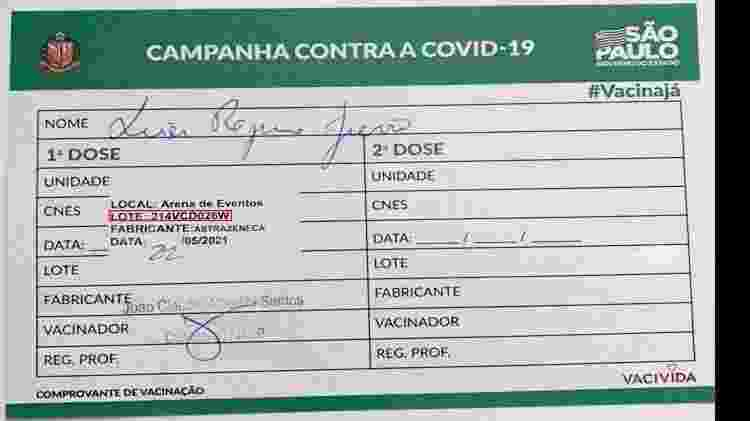 CAMPANHA CONTRA A COVID-19
SÃO PAULO
GOVERNO DO ESTADO
#Vacinajá
NOME
1ª DOSE
2ª DOSE
UNIDADE
UNIDADE
CNES
LOCAL: Arena de Eventos
LOTE: 214VCD026W
FABRICANTE: ASTRAZENECA
DATA: 22/05/2021
CNES
DATA:
DATA: ___/___/___
LOTE
LOTE
FABRICANTE
FABRICANTE
João Santos
VACINADOR
VACINADOR
REG. PROF.
REG. PROF.
COMPROVANTE DE VACINAÇÃO
VACIVIDA